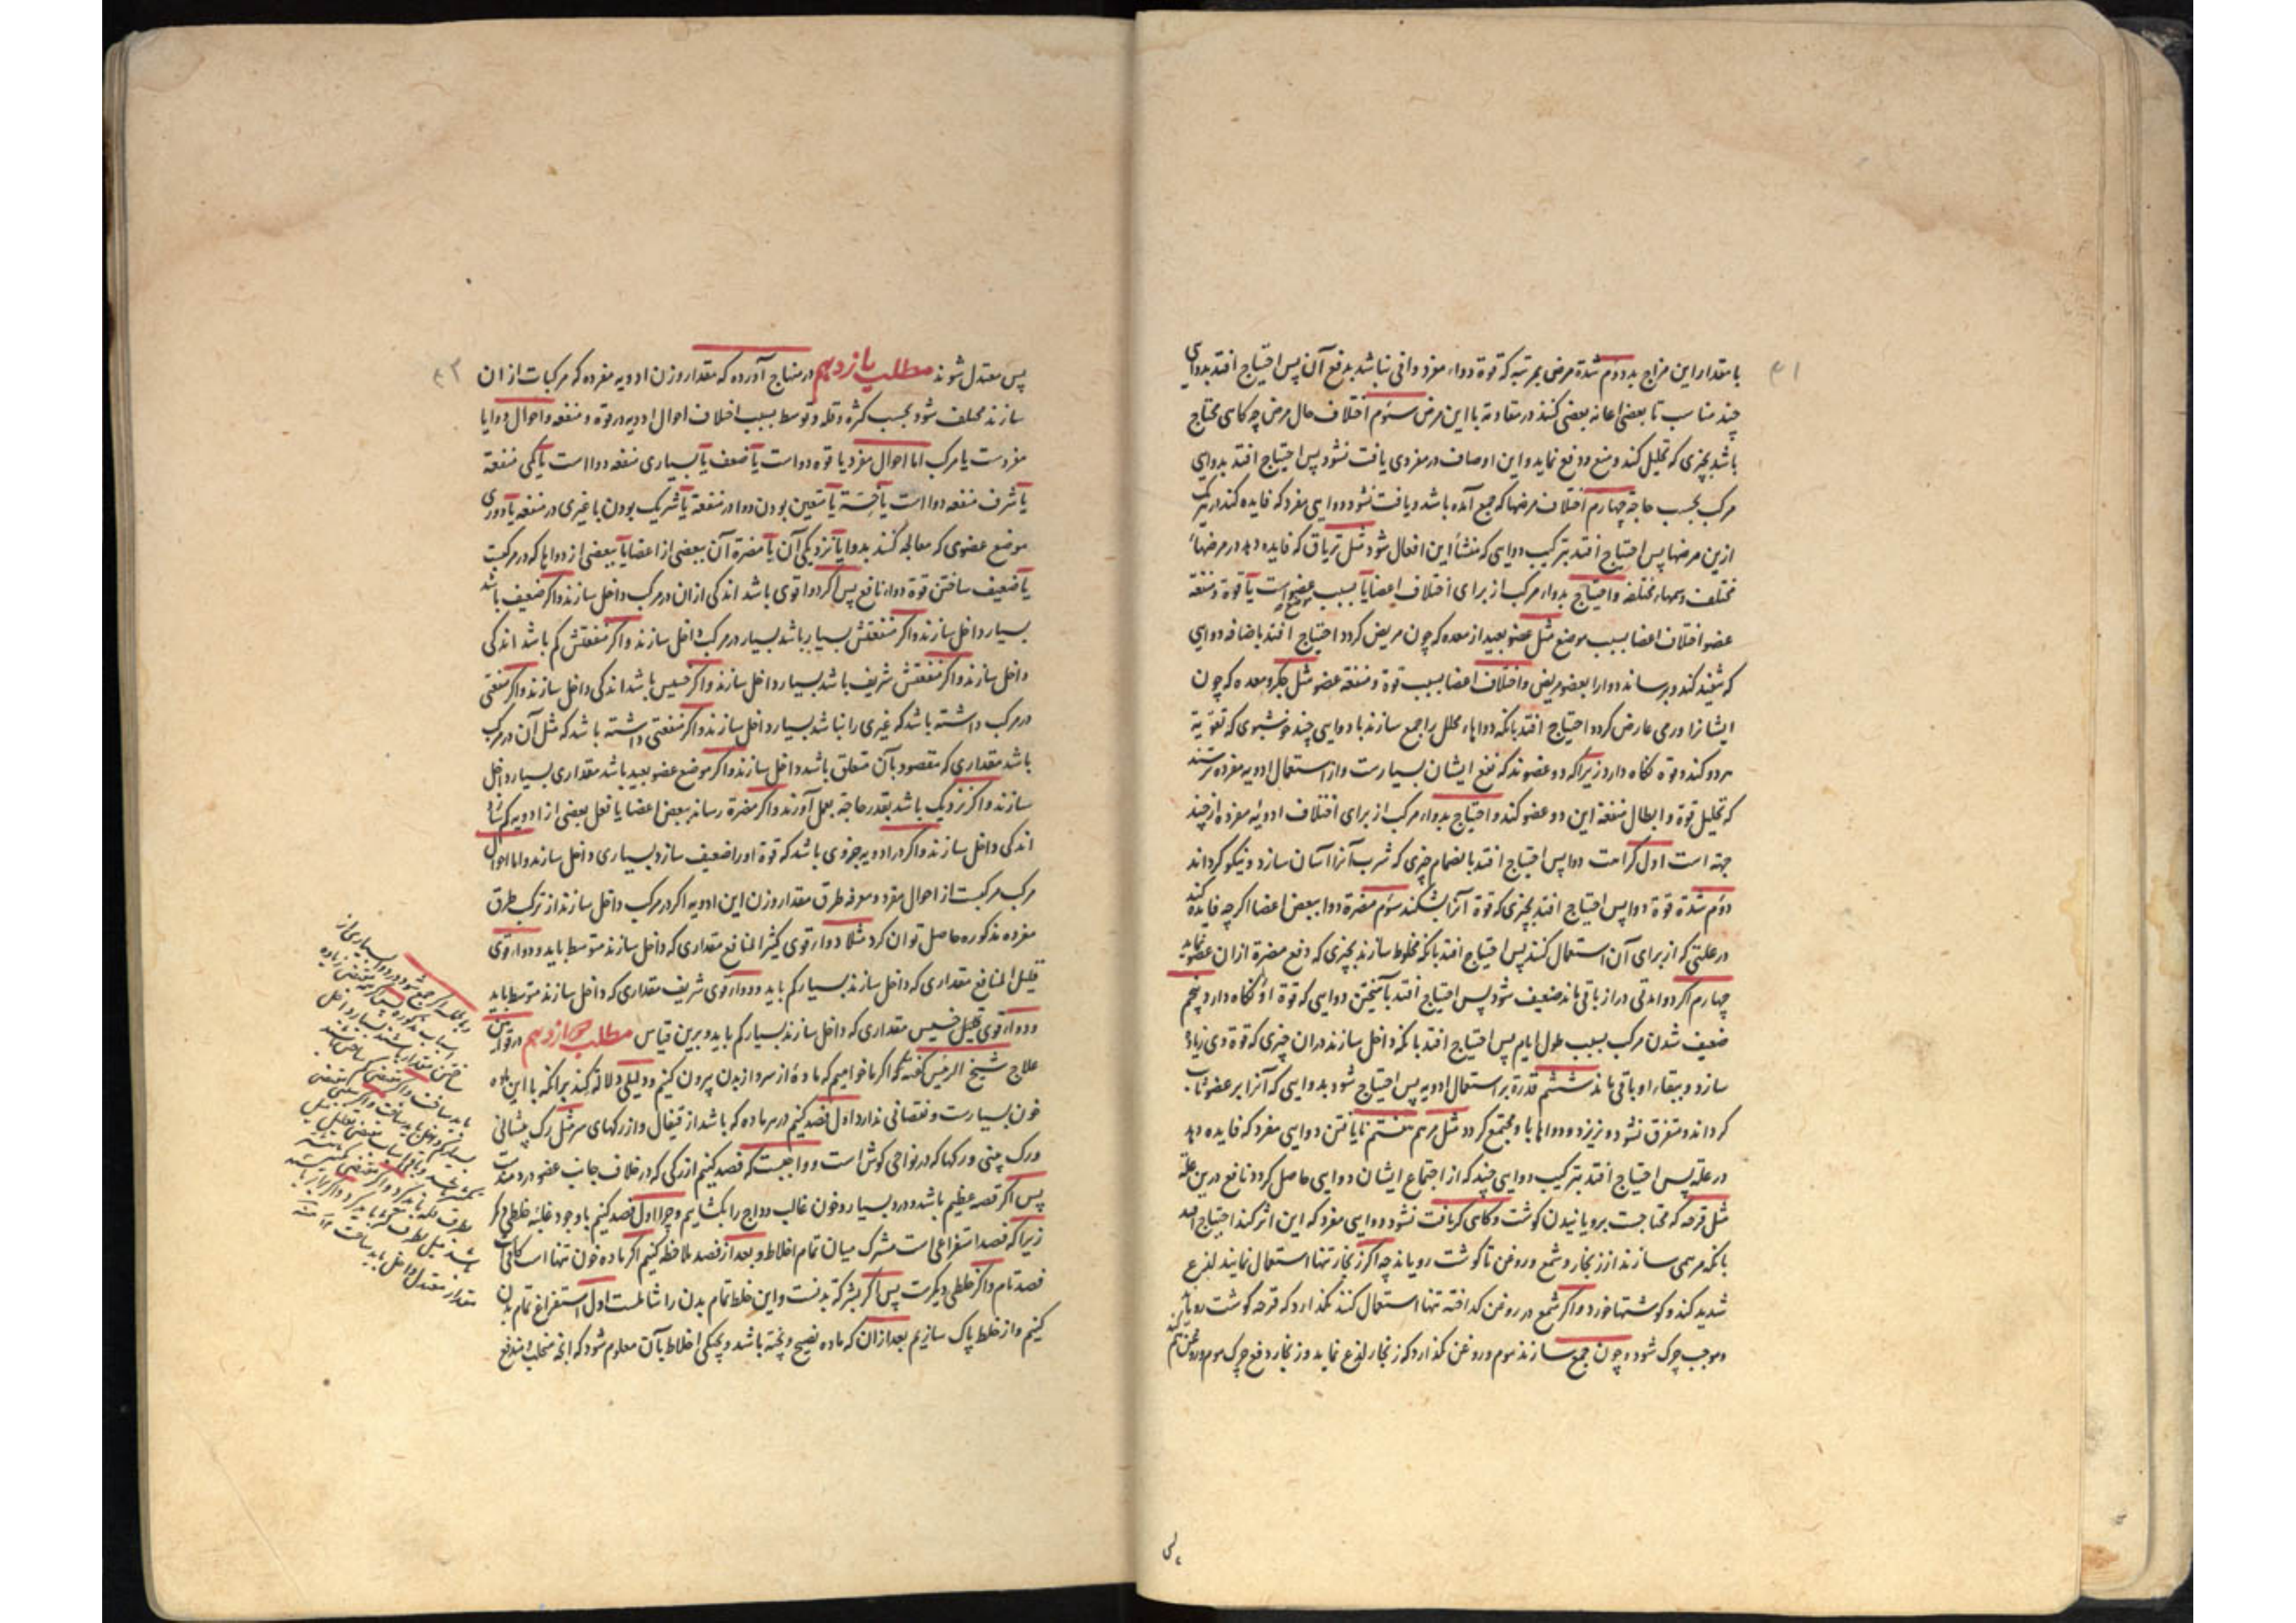 ۴۱
با مقدار این مزاج بد دوم شدة مرض بمرتبه که قوة دواء مفرد وافی نباشد بدفع آن پس احتیاج افتد بدوایی
چند مناسب تا بعضی اعانه بعضی کنند در مقاومة با این مرض سئوم اختلاف حال مرض چه کاهی محتاج
باشد بچیزی که تحلیل کند و منع و دفع نماید و این اوصاف در مفردی یافت نشود پس احتیاج افتد بدوایی
مرکب بحسب حاجة چهارم اختلاف مرضها که جمع آمده باشد و یافت نشود دوایی مفرد که فایده کند در یک یک
ازین مرضها پس احتیاج افتد بترکیب دوایی که منشأ این افعال شود مثل تریاق که فایده دهد در مرضهاء
مختلف و سمهاء مختلفه و احتیاج بدواء مرکب از برای اختلاف اعضا یا بسبب موضع عضو است یا قوة و منفعة
عضو اختلاف اعضا بسبب موضع مثل عضو بعید از معده که چون مریض کردد احتیاج افتد باضافه دوایی
که تنفیذ کند و برساند دوا را بعضو مریض و اختلاف اعضا بسبب قوة و منفعة عضو مثل جکر و معده که چون
ایشانرا ورمی عارض کردد احتیاج افتد بانکه دواهاء محلل را جمع سازند با دوایی چند خوشبوی که تقویة
هر دو کند و قوة نکاه دارد زیرا که دو عضوند که نفع ایشان بسیارست و از استعمال ادویه مفرده ترسند
که تحلیل قوة و ابطال منفعة این دو عضو کند و احتیاج بدواء مرکب از برای اختلاف ادویۀ مفرده از چند
جهة است اول کراهت دوا پس احتیاج افتد بانضمام چیزی که شرب آنرا آسان سازد و نیکو کرداند
دوم شدة قوة دوا پس احتیاج افتد بچیزی که قوة آنرا بشکند سئوم مضرة دوا ببعض اعضا اکرچه فایده کند
در علتی که از برای آن استعمال کنند پس احتیاج افتد بانکه مخلوط سازند بچیزی که دفع مضرة ازان عضو نماید
چهارم اکر دوا مدتی دراز باقی ماند ضعیف شود پس احتیاج افتد بآمیختن دوایی که قوة او نکاه دارد پنجم
ضعیف شدن مرکب بسبب طول ایام پس احتیاج افتد بانکه داخل سازند دران چیزی که قوة وی زیاده
سازد و ببقاء او باقی ماند ششم قدرة بر استعمال ادویه پس احتیاج شود بدوایی که آنرا بر عضو ثابت
کرداند و متفرق نشود و نریزد و دواها با او مجتمع کردد مثل مرهم هفتم نایافتن دوایی مفرد که فایده دهد
در علة پس احتیاج افتد بترکیب دوایی چند که از اجتماع ایشان دوایی حاصل کردد نافع درین علة
مثل قرحه که محتاجست برویانیدن کوشت و کاهی که یافت نشود دوایی مفرد که این اثر کند احتیاج افتد
بانکه مرهمی سازند از زنجار و شمع و روغن تا کوشت رویاند چه اکر زنجار تنها استعمال نمایند لذع
شدید کند و کوشتها خورد و اکر شمع در روغن کداخته تنها استعمال کنند نکذارد که قرحه کوشت رویاند
و موجب چرک شود و چون جمع سازند موم و روغن نکذارد که زنجار لذع نماید و زنجار دفع چرک موم و روغن کند
پس
۴۲
پس معتدل شوند مطلب یازدهم در منهاج آورده که مقدار وزن ادویه مفرده که مرکبات ازان
سازند مختلف شود بحسب کثرة و قلة و توسط بسبب اختلاف احوال ادویه در قوة و منفعة و احوال دوا یا
مفردست یا مرکب اما احوال مفرد یا قوة دوا است یا ضعف یا بسیاری منفعة دوا است یا کمی منفعة
یا شرف منفعة دوا است یا خسة یا متعین بودن دوا در منفعة یا شریک بودن با غیری در منفعة یا دوری
موضع عضوی که معالجه کنند بدوا یا نزدیکی آن یا مضرة آن ببعضی از اعضا یا ببعضی از دواها که در مرکبست
یا ضعیف ساختن قوة دواء نافع پس اکر دوا قوی باشد اندکی ازان در مرکب داخل سازند و اکر ضعیف باشد
بسیار داخل سازند و اکر منفعتش بسیار باشد بسیار در مرکب داخل سازند و اکر منفعتش کم باشد اندکی
داخل سازند و اکر منفعتش شریف باشد بسیار داخل سازند و اکر خسیس باشد اندکی داخل سازند و اکر منفعتی
در مرکب داشته باشد که غیری را نباشد بسیار داخل سازند و اکر منفعتی داشته باشد که مثل آن در مرکب
باشد مقداری که مقصود بآن متعلق باشد داخل سازند و اکر موضع عضو بعید باشد مقداری بسیار داخل
سازند و اکر نزدیک باشد بقدر حاجة بعمل آورند و اکر مضرة رساند ببعض اعضا یا فعل بعضی از ادویه کم سازد
اندکی داخل سازند و اکر در ادویه جزوی باشد که قوة او را ضعیف سازد بسیاری داخل سازند و اما احوال
مرکب مرکبست از احوال مفرد و معرفة طرق مقدار وزن این ادویه اکر در مرکب داخل سازند از ترکیب طرق
مفرده مذکوره حاصل توان کرد مثلا دواء قوی کثیر المنافع مقداری که داخل سازند متوسط باید و دواء قوی
قلیل المنافع مقداری که داخل سازند بسیار کم باید و دواء قوی شریف مقداری که داخل سازند متوسط باید
و دواء قوی قلیل خسیس مقداری که داخل سازند بسیار کم باید و برین قیاس مطلب دوازدهم در قوانین
علاج شیخ الرئیس کفته که اکر ما خواهیم که مادۀ از سر و از بدن بیرون کنیم و دلیلی دلالة کند برانکه با این ماده
خون بسیارست و نقصانی ندارد اول فصد کنیم در هر ماده که باشد از قیفال و از رکهای سر مثل رک پیشانی
و رک بینی و رکها که در نواحی کوش است و واجبست که فصد کنیم از رکی که در خلاف جانب عضو دردمندست
پس اکر قصه عظیم باشد و درد بسیار و خون غالب وداج را بکشاییم و چرا اول فصد کنیم با وجود غلبۀ خلطی دیکر
زیرا که فصد استفراغی است مشترک میان تمام اخلاط و بعد از فصد ملاحظه کنیم اکر ماده خون تنها است کافیست
فصد تام و اکر خلطی دیکرست پس اکر بشرکة بدنست و این خلط تمام بدن را شاملست اول استفراغ تمام بدن
کنیم و از خلط پاک سازیم بعد ازان که ماده نضیج و پخته باشد و پختکی اخلاط بآن معلوم شود که انچه منحلب و مندفع